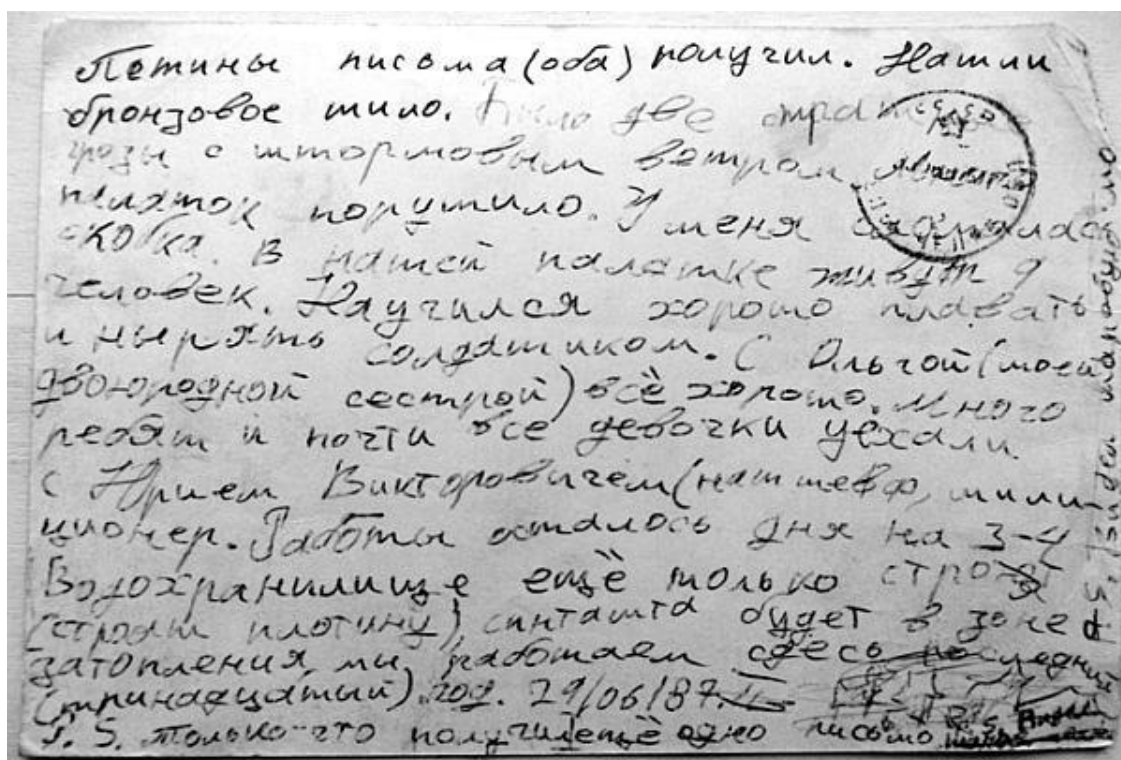 Петины письма (оба) получил. Нашли
бронзовое шило. Было две
грозы с штормовым ветром
палаток порушило. У меня сломалась
скобка. В нашей палатке живут 9
человек. Научился хорошо плавать
и нырять солдатиком. С Ольгой (моей
двоюродной сестрой) всё хорошо. Много
ребят и почти все девочки уехали
с Юрием Викторовичем (наш шевф, мили-
ционер. Работы осталось дня на 3-4
Водохранилище ещё только строят
(строят плотину), синташта будет в зоне
затопления, мы работаем сдесь последний
(тринадцатый) год. 29/06/87.
P. S. только-что получил ещё одно письмо